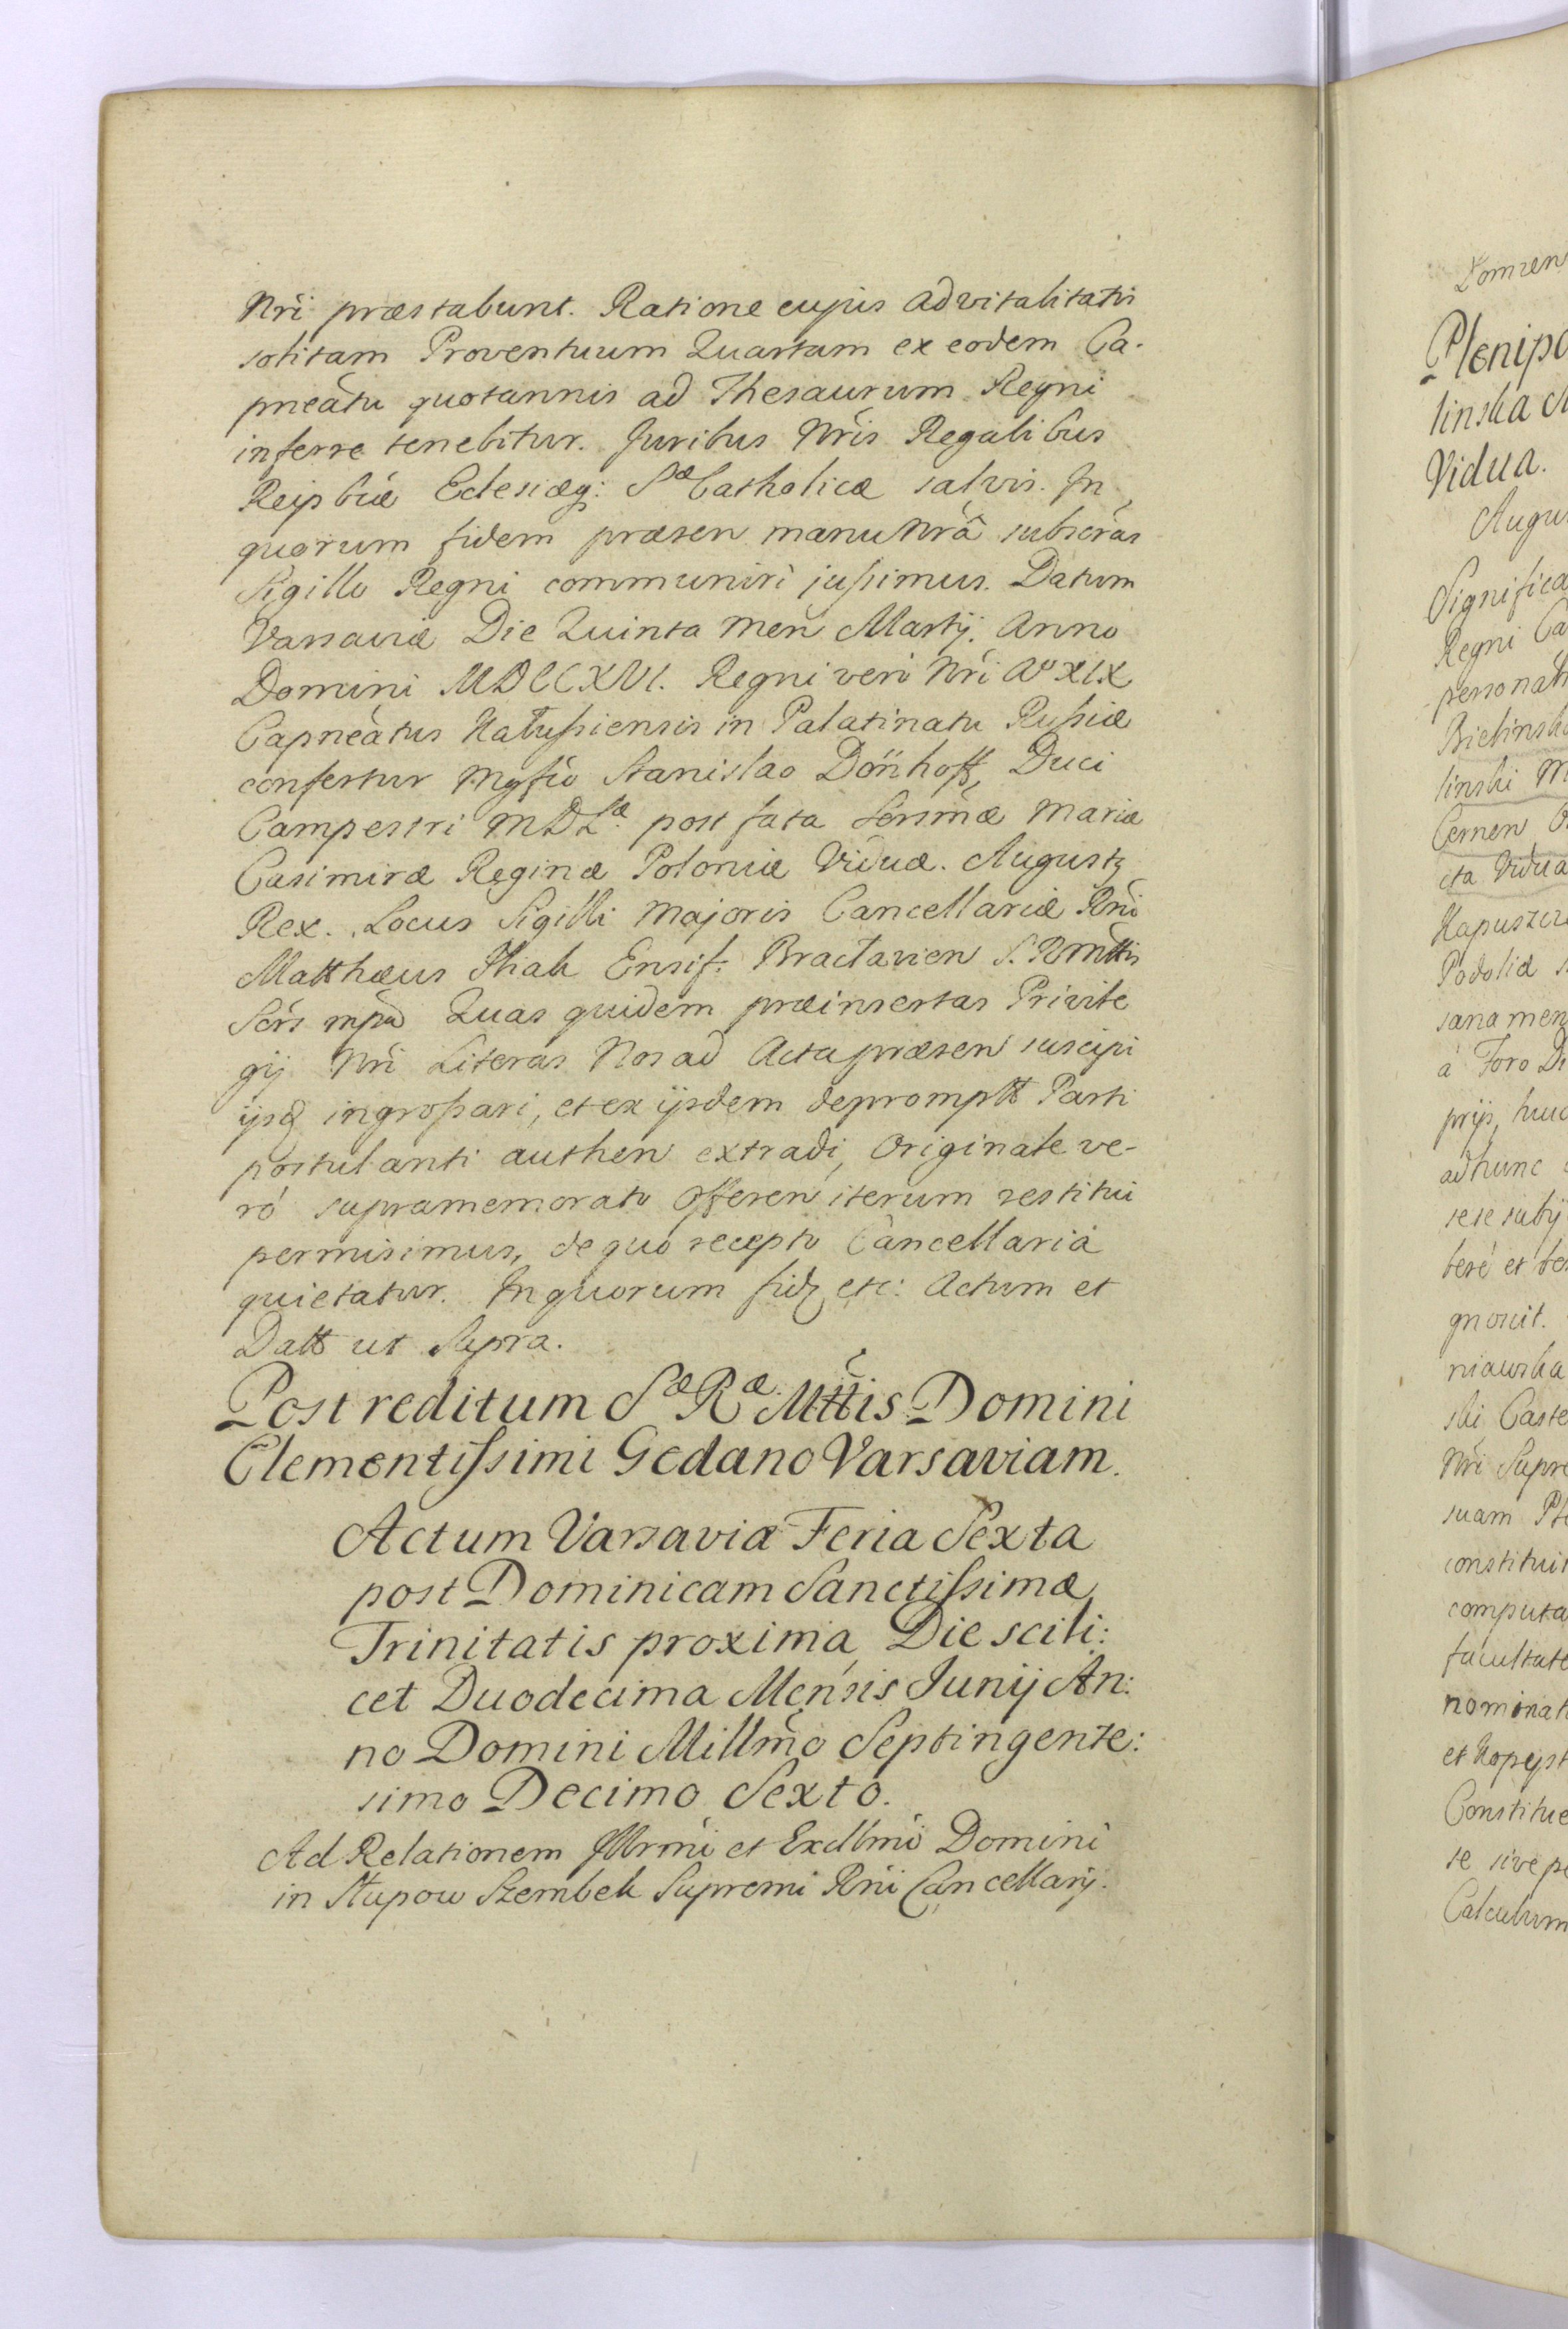 Nri præstabunt. Ratione cujus advitalitatis
solitam Proventuum Quartam ex eodem Ca-
pneatu quotannis ad Thesaurum Regni
inferre tenebitur. Juribus Nris Regalibus
Reipbcæ Eclesiæq: Sæ Catholicæ salvis. In
quorum fidem præsen manu Nrâ subscras
Sigillo Regni communiri jussimus. Datum
Varsaviæ Die Quinta Men Martij. Anno
Domini MDCCXVI. Regni vero Nri Ao XIX
Capneatus Kałussiensis in Palatinatu Russiæ
confertur Mgfco Stanislao Dönhoff, Duci
Campestri MDLæ. post fata Sermæ Mariæ
Casimiræ Reginæ Poloniæ Viduæ. Augustq
Rex. Locus Sigilli Majoris Cancellariæ Rni
Matthæus Ensif: Bracłavien S. R Mttis
Scrs mpa Quas quidem præinsertas Privile
gij Nri Literas Nos ad Acta præsen suscipi
ijsq ingrossari, et ex ijsdem depromptt Parti
postulanti authen extradi, Originale ve-
ró supramemorato Offeren iterum restitui
permisimus, de quo recepto Cancellaria
quietatur. In quorum fidz etc: Actum et
Datt ut Supra.
Post reditum Sæ Ræ Mttis Domini
Clementissimi Gedano Varsaviam.
Actum Varsaviæ Feria Sexta
post Dominicam Sanctissimæ
Trinitatis proxima, Die scili:
cet Duodecima Mensis Junij An:
no Domini Millmo Septingente:
simo Decimo Sexto.
Ad Relationem Illrmi et Excllmi Domini
in Słupow Szembek Supremi Rni Cancellarij.
Plenipo
linska
Vidua.
Augus
Significa
Regni Ca
personali
Bielinska
linski M
Cemen
cta Vidua
Kapuszcz
Podoliæ
sana men
à Foro Di
prijs, huc
adhunc
sese subij
berè et be
gnovit.
niawska
ski Caste
Nri Supre
suam Ple
constituit
computa
facultate
nominat
et
Constitue
se sive pe
Calculum